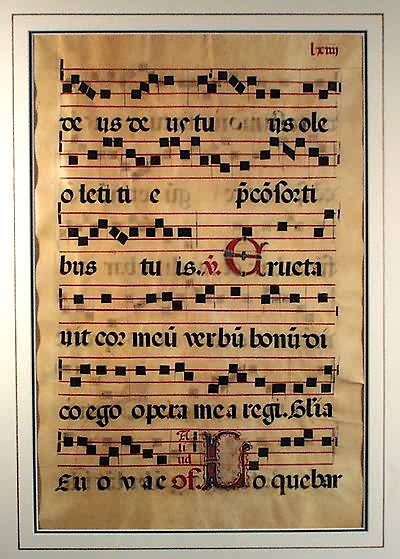 de us de us tu us ole
o leti ti e p̄cōsorti
bus tu is. ℣. Eructa
uit cor meū verbū bonū di
co ego opera mea regi. Glīa
Eu o v a e of. Lo quebar